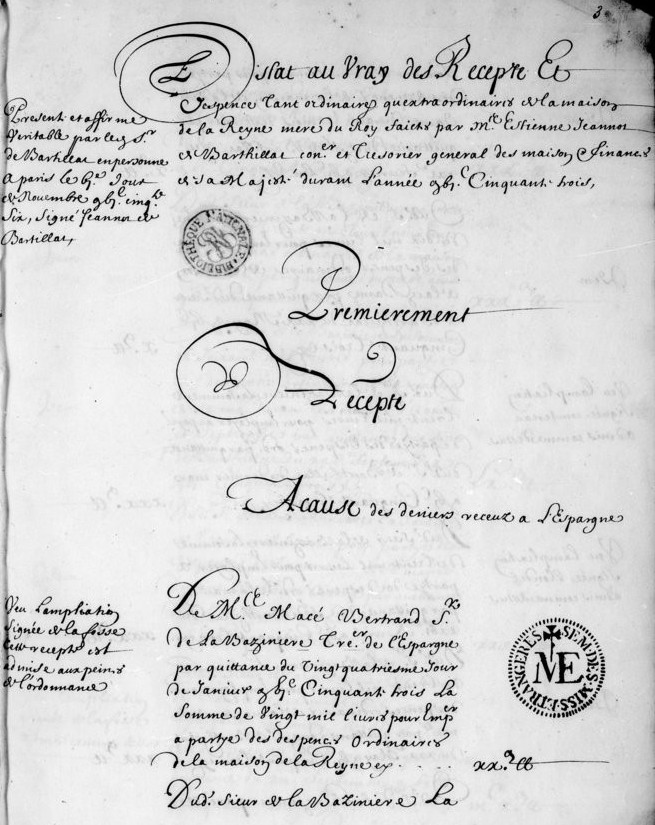 3
Estat au Vray des Recepte Et
Despence tant ordinaires quextraordinaires de la maison
de la Reyne mere du Roy faicts par Me Estienne Jeannot
de Barthillat coner et Tresorier general des maison & finances
de sa Majesté durant l'année gbjc Cinquante trois,
Present et affirmé
Veritable par led Sr
de Bartillat en personne
A paris le Jour
de Novembre gbjc cinqte
Six, Signé Jeannot de
Bartillat,
BIBLIOTHÈQUE NATIONALE
Premierement
Recepte
Acause des deniers receuz a l'Espargne
Veu Lampliation
Signée de la fosse
Cette recepte est
admise aux peines
de l'ordonnance
De Mce Macé Bertrand Sr
de La Baziniere Trer de l'Espargne
par quittance du Vingt quatriesme Jour
de Janvier gbjc Cinquante trois La
Somme de Vingt mil livres pour Emper
a partye des despences Ordinaires
de la maison de la Reyne cy . . xx.m ll
Dud. Sieur de la Baziniere La
SEM. DES MISS. ETRANGERES
ME